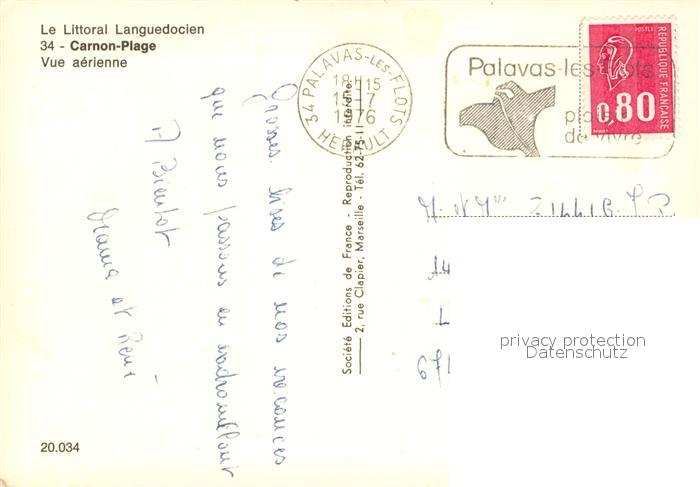 Le Littoral Languedocien
34 - Carnon-Plage
Vue aérienne
34 PALAVAS-LES-FLOTS
18H15
1976
HERAULT
Palavas-les-Flots
de vivre
POSTES
REPUBLIQUE FRANÇAISE
0,80
Grosses bises de nos vacances
que nous passons en vadrouillant
A Bientot
et René
Société Editions de France - Reproduction interdite
2, rue Clapier, Marseille - Tél. 62-75-11
M. et Mme
privacy protection
Datenschutz
20.034